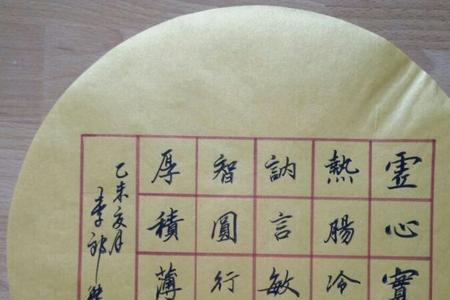 虚心實
熱腸冷
訥言敏
智圓行
厚積薄
乙未亥月
李